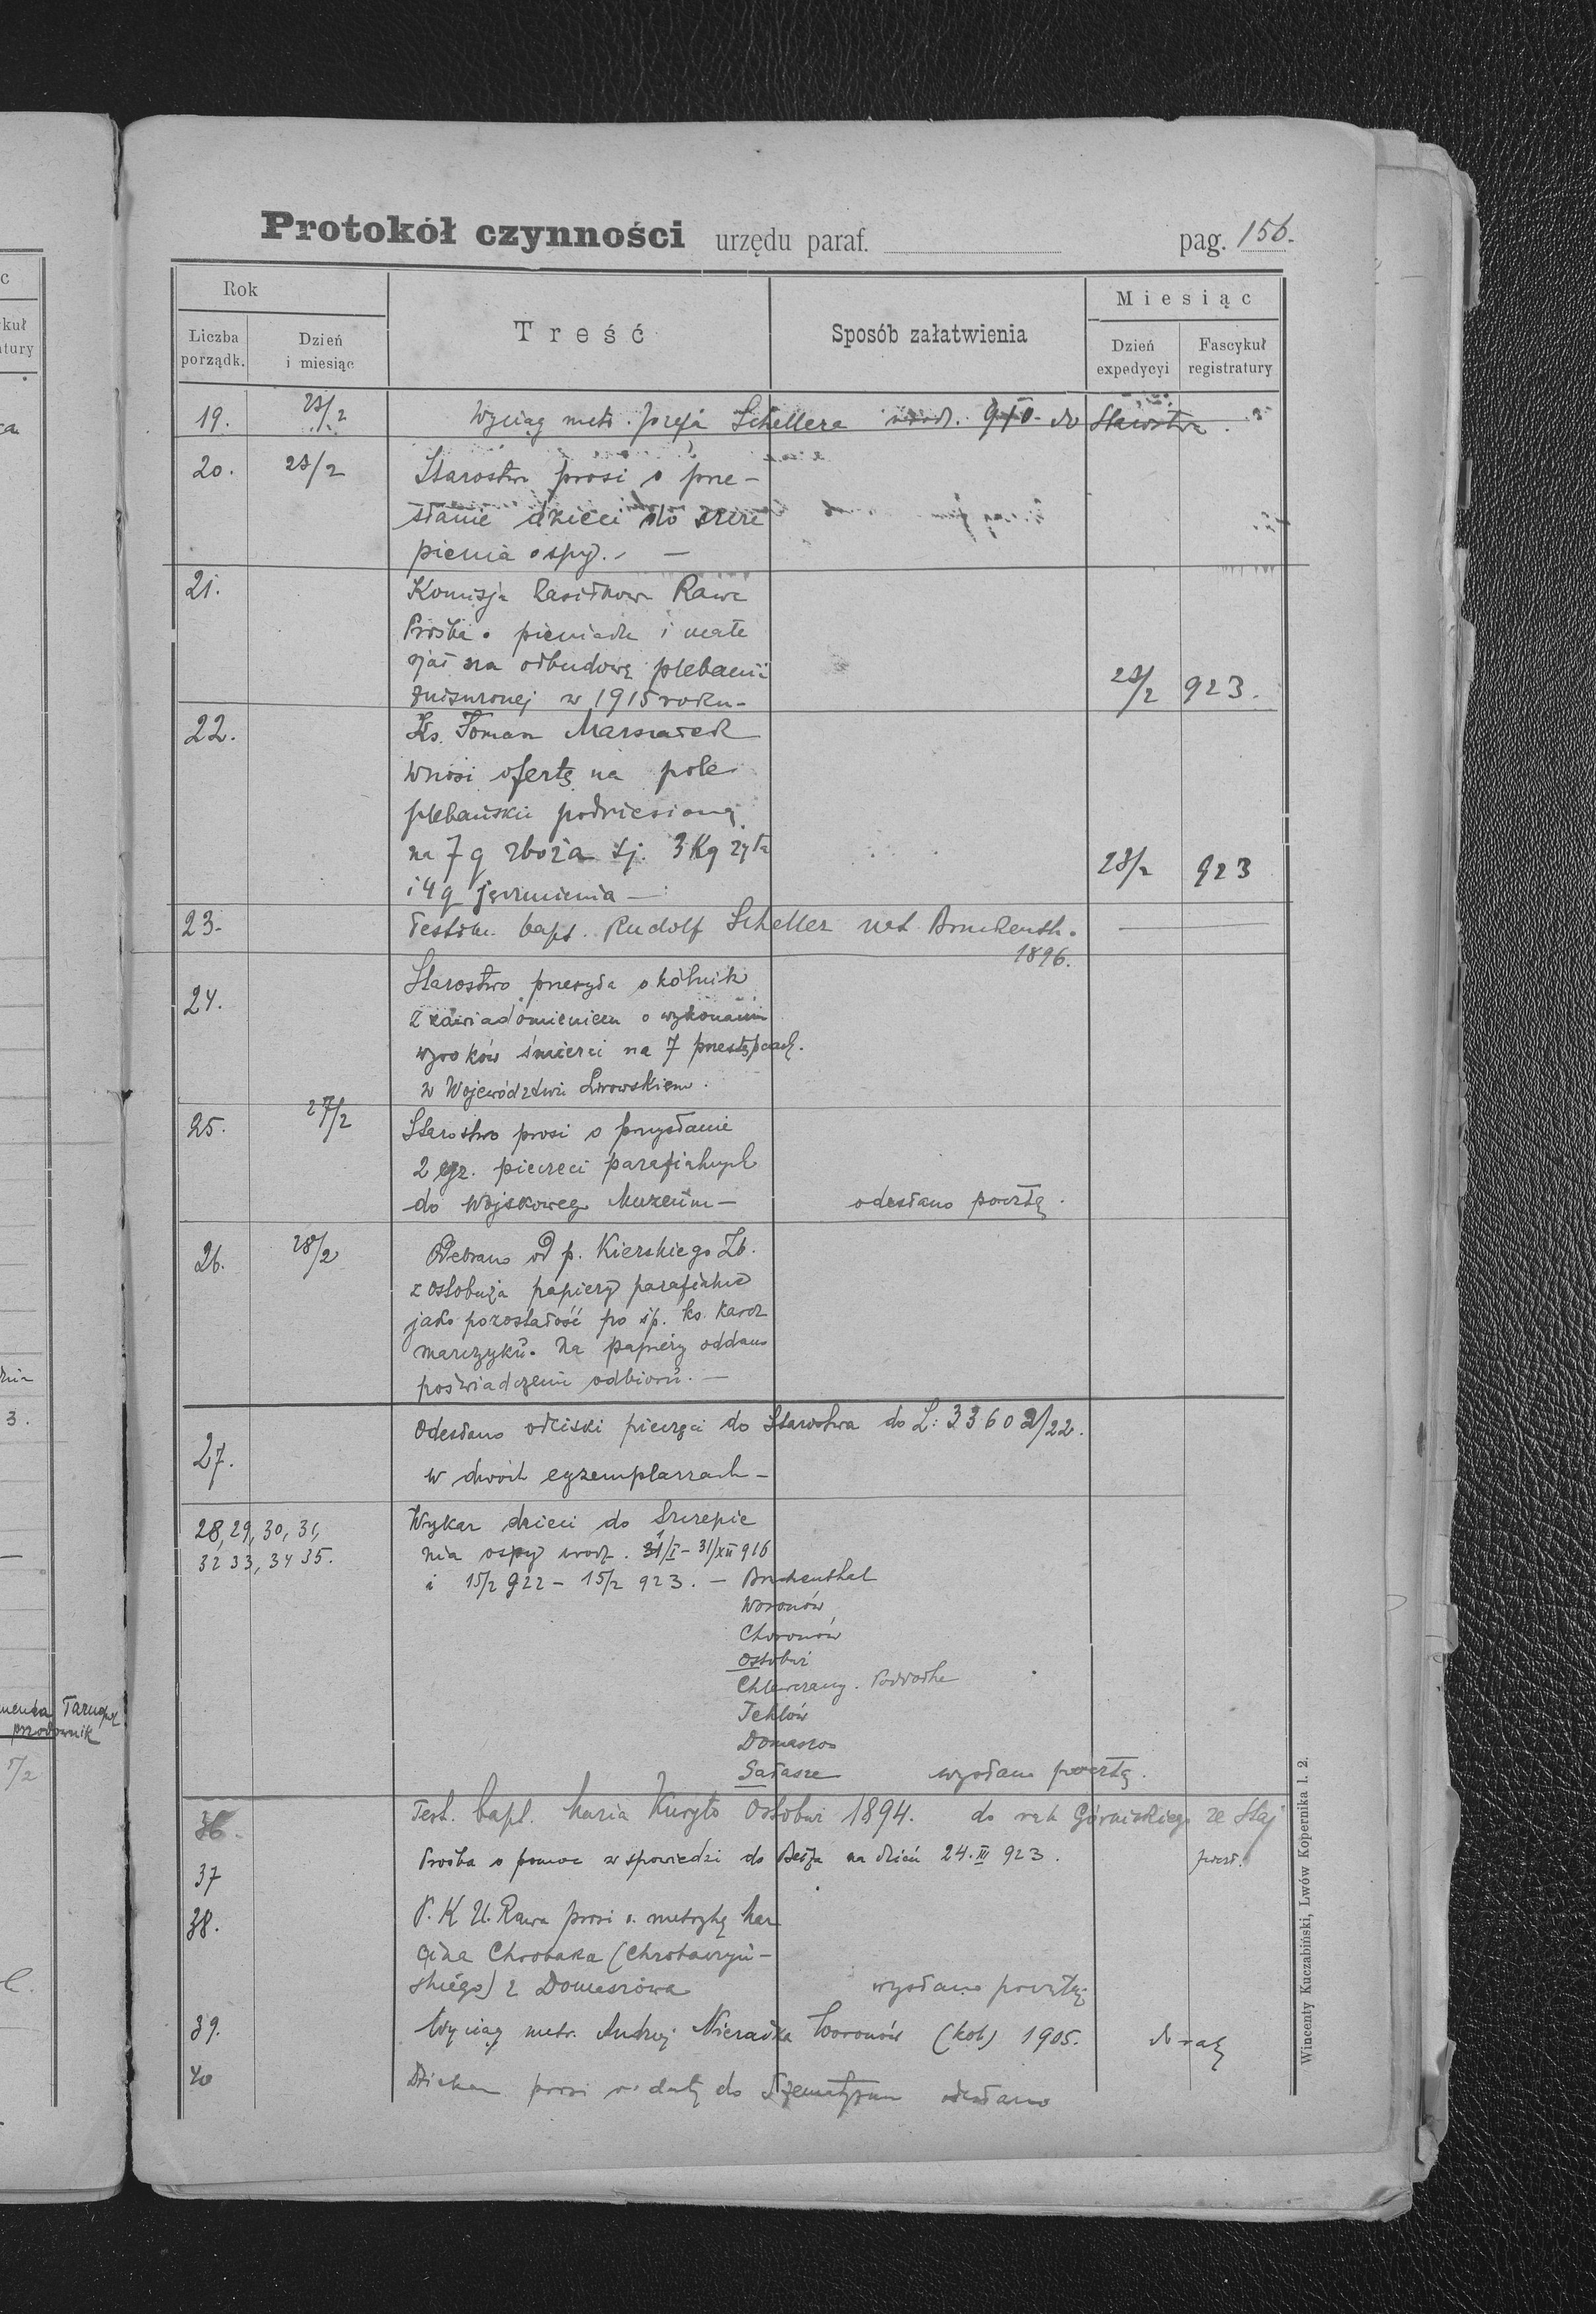 Protokół czynności urzędu paraf. pag. 156.
Rok
Liczba porządk.
Dzień i miesiąc
Treść
Sposób załatwienia
Miesiąc
Dzień expedycyi
Fascykuł registratury
19. 23/2 Wyciąg metr. Józefa Schellera urodz. 910 do Starostwa.
20. 23/2 Starostwo prosi o prze-
słanie dzieci do szcze
pienia ospy. —
21. Komisja Zasiłkowa Rawa
Prośba o pieniądze i mate
rjał na odbudowę plebanii
zniszczonej w 1915 roku - 23/2 923.
22. Ks. Toman Marszałek
wnosi ofertę na pole
plebańskie podniesioną
na 7 q zboża tj. 3 Kq żyta
i 4 q jęczmienia — 23/2 923
23. Testim. bapt. Rudolf Scheller nat. Bruckenth.
1896.
24. Starostwo przesyła okólnik
z zawiadomieniem o wykonaniu
wyroków śmierci na 7 przestępcach.
w Województwie Lwowskiem.
25. 27/2 Starostwo prosi o przysłanie
2 egz. pieczęci parafialnych
do Wojskowego Muzeum — odesłano pocztą.
26. 28/2 Odebrano od p. Kierskiego Zb.
z Ostobuża papiery parafialne
jako pozostałość po śp. ks. Karcz
marczyku. Na papiery oddano
poświadczenie odbioru. —
27. Odesłano odciski pieczęci do Starostwa do L: 33602/22.
w dwóch egzemplarzach —
28, 29, 30, 31, Wykaz dzieci do Szczepie
32 33, 34 35. nia ospy urodz. 1/I - 31/XII 916
i 15/2 922 - 15/2 923. — Bruckenthal
Woronów
Choronów
Ostobuż
Chlewczany. Podwodne
Tehlów
Domaszów
Sałasze wysłano pocztą.
36. Test. bapt. Maria Kuryło Ostobuż 1894. do rąk Górnickiego ze Staj
37 Prośba o pomoc w spowiedzi do Bełza na dzień 24. III 923. poczt.
38. P. K. U. Rawa prosi o metrykę Mar
cina Chrobaka (Chrobaczyń-
skiego) z Domaszowa wysłano pocztą
39. Wyciąg metr. Andrzej Nieradka Woronów (kol) 1905. do rąk
40 Dziekan prosi o daty do Szematyzmu odesłano
Wincenty Kuczabiński, Lwów Kopernika l. 2.